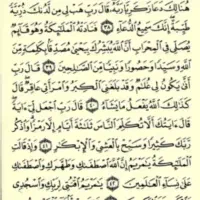 هُنَالِكَ دَعَا زَكَرِيَّا رَبَّهُۥ قَالَ رَبِّ هَبْ لِى مِن لَّدُنكَ ذُرِّيَّةً
طَيِّبَةً إِنَّكَ سَمِيعُ ٱلدُّعَآءِ ٣٨ فَنَادَتْهُ ٱلْمَلَٰٓئِكَةُ وَهُوَ قَآئِمٌ
يُصَلِّى فِى ٱلْمِحْرَابِ أَنَّ ٱللَّهَ يُبَشِّرُكَ بِيَحْيَىٰ مُصَدِّقًۢا بِكَلِمَةٍ مِّنَ
ٱللَّهِ وَسَيِّدًا وَحَصُورًا وَنَبِيًّا مِّنَ ٱلصَّٰلِحِينَ ٣٩ قَالَ رَبِّ
أَنَّىٰ يَكُونُ لِى غُلَٰمٌ وَقَدْ بَلَغَنِىَ ٱلْكِبَرُ وَٱمْرَأَتِى عَاقِرٌ قَالَ
كَذَٰلِكَ ٱللَّهُ يَفْعَلُ مَا يَشَآءُ ٤٠ قَالَ رَبِّ ٱجْعَل لِّىٓ ءَايَةً قَالَ
ءَايَتُكَ أَلَّا تُكَلِّمَ ٱلنَّاسَ ثَلَٰثَةَ أَيَّامٍ إِلَّا رَمْزًا وَٱذْكُر
رَّبَّكَ كَثِيرًا وَسَبِّحْ بِٱلْعَشِىِّ وَٱلْإِبْكَٰرِ ٤١ وَإِذْ قَالَتِ
ٱلْمَلَٰٓئِكَةُ يَٰمَرْيَمُ إِنَّ ٱللَّهَ ٱصْطَفَىٰكِ وَطَهَّرَكِ وَٱصْطَفَىٰكِ
عَلَىٰ نِسَآءِ ٱلْعَٰلَمِينَ ٤٢ يَٰمَرْيَمُ ٱقْنُتِى لِرَبِّكِ وَٱسْجُدِى